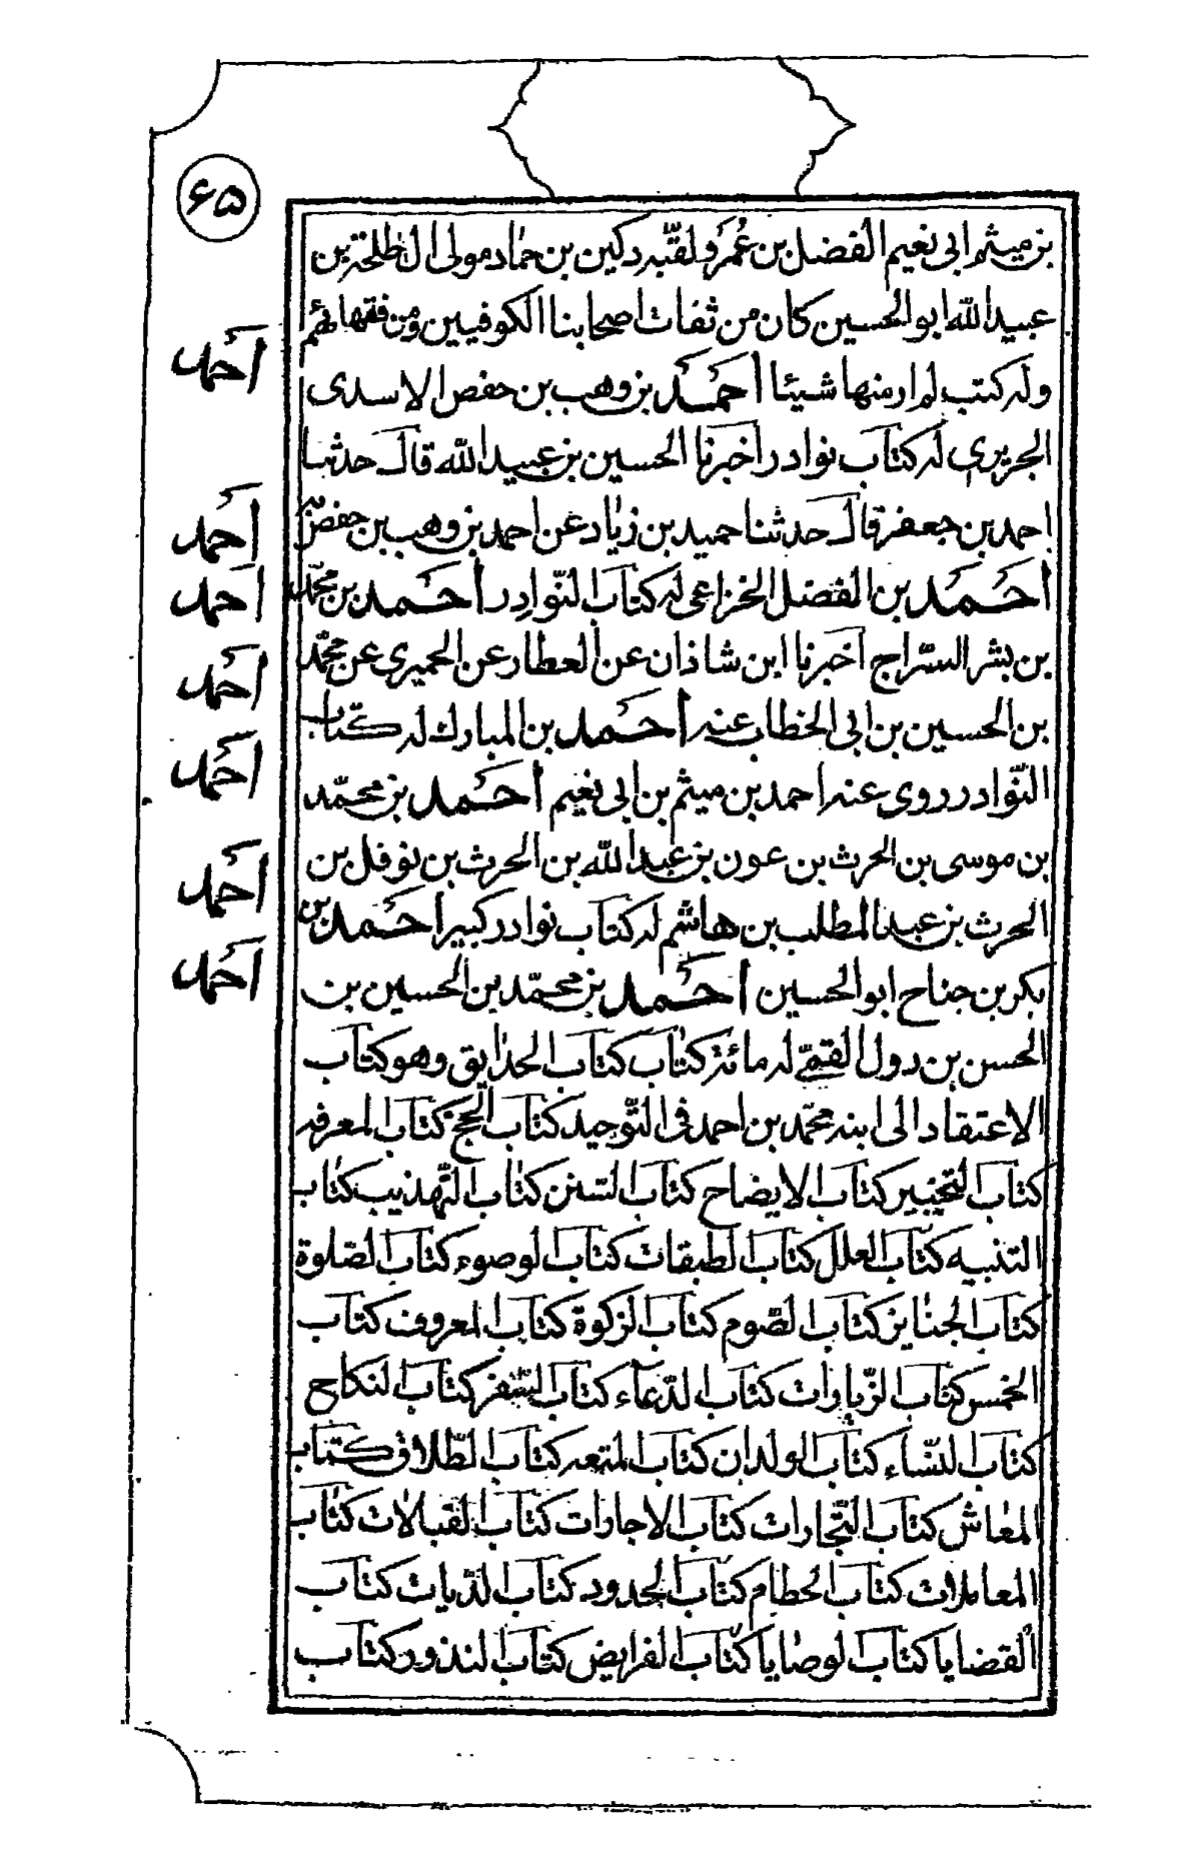 ۶۵
بن ميثم ابى نعيم الفضل بن عُمَر ولقبه دكين بن حمّاد مولى ال طلحة بن
عبيد الله ابو الحسين كان من ثقات اصحابنا الكوفيين ومن فقهائهم
وله كتب لم ار منها شيئا أحمد بن وهب بن حفص الاسدى
الجريرى له كتاب نوادر اخبرنا الحسين بن عبيد الله قال حدثنا
احمد بن جعفر قال حدثنا حميد بن زياد عن احمد بن وهب بن حفص به
أحمد بن الفضل الخزاعى له كتاب النّوادر أحمد بن محمّد
بن بشر السرّاج اخبرنا ابن شاذان عن العطار عن الحميرى عن محمّد
بن الحسين بن ابى الخطاب عنه أحمد بن المبارك له كتاب
النّوادر روى عنه احمد بن ميثم بن ابى نعيم أحمد بن محمّد
بن موسى بن الحرث بن عون بن عبد الله بن الحرث بن نوفل بن
الحرث بن عبد المطلب بن هاشم له كتاب نوادر كبير أحمد بن
بكر بن جناح ابو الحسين أحمد بن محمّد بن الحسين بن
الحسن بن دول القمّى له مائة كتاب كتاب الحدايق وهو كتاب
الاعتقاد الى ابنه محمّد بن احمد فى التّوحيد كتاب الحجّ كتاب المعرفه
كتاب التخيير كتاب الايضاح كتاب السّنن كتاب التّهذيب كتاب
التنبيه كتاب العلل كتاب الطبقات كتاب الوضوء كتاب الصّلوة
كتاب الجنايز كتاب الصّوم كتاب الزكوة كتاب المعروف كتاب
الخمس كتاب الزّيارات كتاب الدّعاء كتاب السّفر كتاب النكاح
كتاب النسّاء كتاب الولدان كتاب المتعه كتاب الطّلاق كتاب
المعاش كتاب التّجارات كتاب الاجارات كتاب القبالات كتاب
المعاملات كتاب الحطام كتاب الحدود كتاب الدّيات كتاب
القضايا كتاب الوصايا كتاب الفرايض كتاب النذور كتاب
أحمد
أحمد
أحمد
أحمد
أحمد
أحمد
أحمد